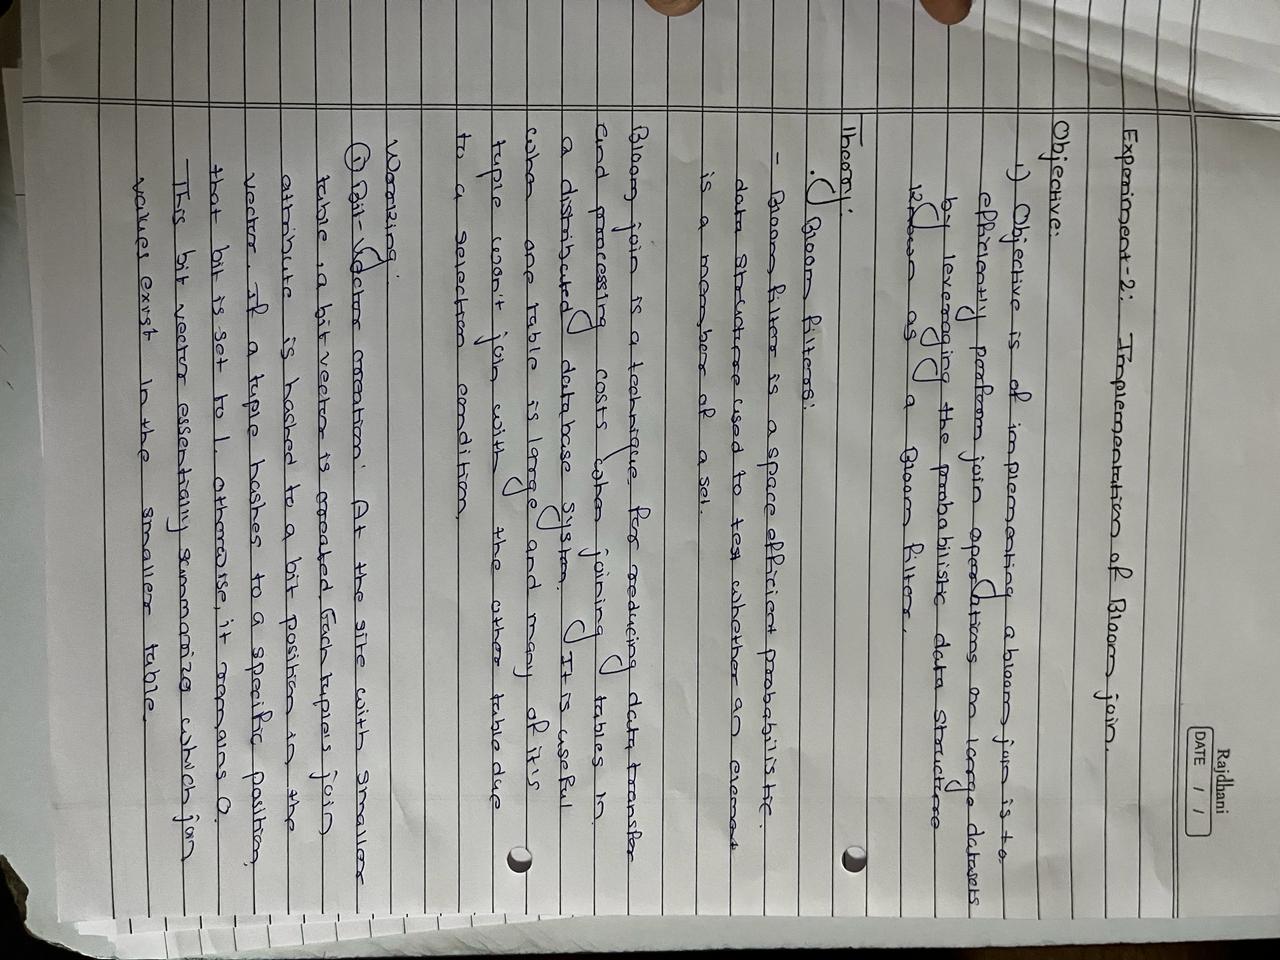 Rajdhani
DATE / /
Experiment-2: Implementation of Bloom join.
Objective:
1) Objective is of implementing a bloom join is to
efficiently perform join operations on large datasets
by leveraging the probabilistic data structure
known as a Bloom filter.
Theory:
Bloom filters:
- Bloom filter is a space efficient probabilistic
data structure used to test whether an element
is a member of a set.
Bloom join is a technique for reducing data transfer
and processing costs when joining tables in
a distributed database system. It is useful
when one table is large and many of it's
tuple won't join with the other table due
to a selection condition.
Working:
① Bit-Vector creation: At the site with smaller
table, a bit vector is created. Each tuples join
attribute is hashed to a bit position in the
vector. If a tuple hashes to a specific position,
that bit is set to 1. otherwise, it remains 0.
This bit vector essentially summarize which join
values exist in the smaller table.